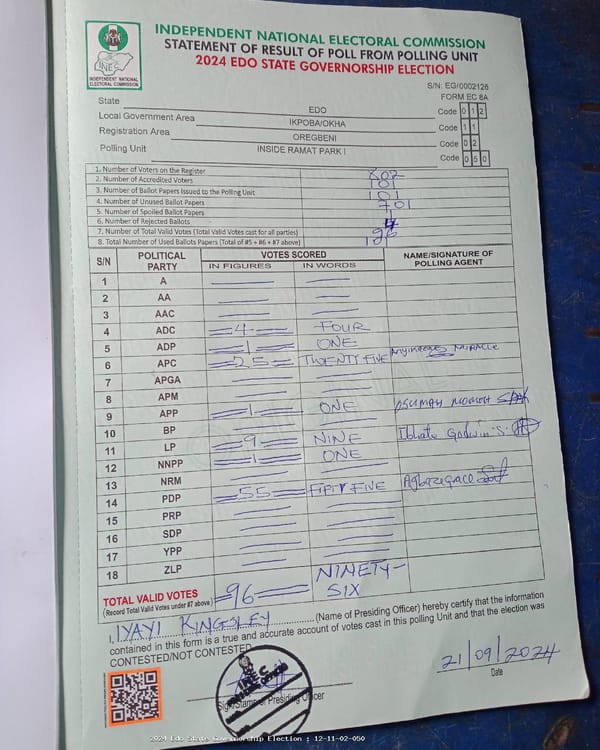 INDEPENDENT NATIONAL ELECTORAL COMMISSION
STATEMENT OF RESULT OF POLL FROM POLLING UNIT
2024 EDO STATE GOVERNORSHIP ELECTION
INDEPENDENT NATIONAL ELECTORAL COMMISSION
S/N: EG/0002126
FORM EC 8A
State EDO Code 0 1 2
Local Government Area IKPOBA/OKHA Code 1 1
Registration Area OREGBENI Code 0 2
Polling Unit INSIDE RAMAT PARK I Code 0 5 0
1. Number of Voters on the Register 802
2. Number of Accredited Voters 101
3. Number of Ballot Papers Issued to the Polling Unit
4. Number of Unused Ballot Papers 701
5. Number of Spoiled Ballot Papers
6. Number of Rejected Ballots
7. Number of Total Valid Votes (Total Valid Votes cast for all parties)
8. Total Number of Used Ballots Papers (Total of #5 + #6 + #7 above)
S/N POLITICAL PARTY VOTES SCORED NAME/SIGNATURE OF POLLING AGENT
IN FIGURES IN WORDS
1 A
2 AA
3 AAC
4 ADC 4 FOUR
5 ADP 1 ONE
6 APC 25 TWENTY FIVE MIRACLE
7 APGA
8 APM
9 APP 1 ONE MOMOH
10 BP
11 LP 9 NINE Godwin S.
12 NNPP 1 ONE
13 NRM
14 PDP 55 FIFTY FIVE
15 PRP
16 SDP
17 YPP
18 ZLP
TOTAL VALID VOTES 96 NINETY-SIX
(Record Total Valid Votes under #7 above)
I, IYAYI KINGSLEY (Name of Presiding Officer) hereby certify that the information
contained in this form is a true and accurate account of votes cast in this polling Unit and that the election was
CONTESTED/NOT CONTESTED
21/09/2024
Date
Presiding Officer
2024 Edo State Governorship Election : 12-11-02-050